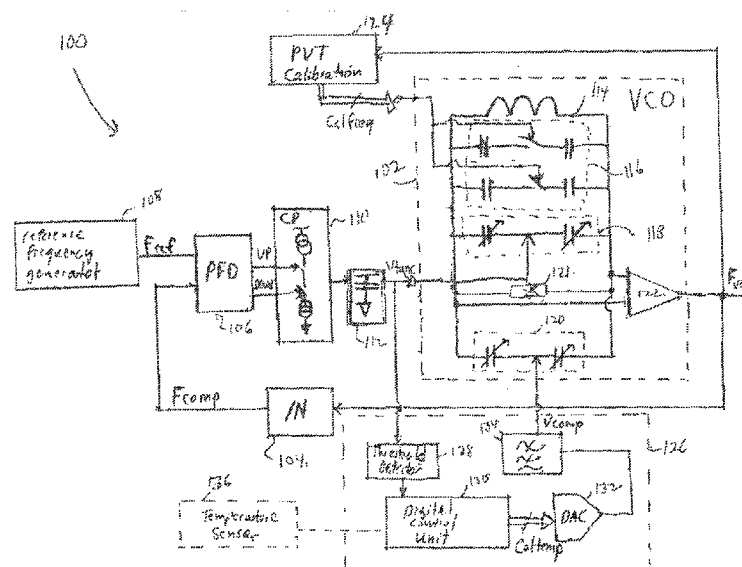 100
124
PVT
Calibration
Calfreq
114
VCO
102
116
108
reference
frequency
generator
Fref
PFD
UP
106
CP
110
112
Vtune
118
121
122
120
Fcomp
/N
104
Vcomp
134
126
Threshold
Detector
128
136
Temperature
Sensor
130
Digital
Control
Unit
Caltemp
DAC
132